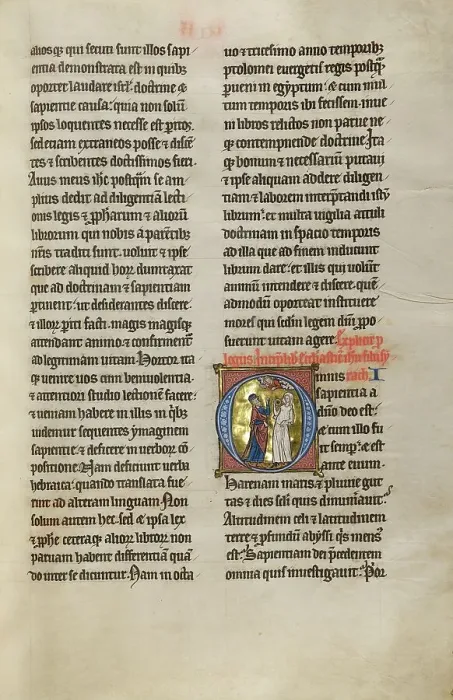 aliosq; qui secuti sunt illos sapi
entia demonstrata est in quib;
oportet laudare isrl doctrine ⁊
sapientie causa: quia non solū
ipsos loquentes necesse est pitos.
sed etiam extraneos posse ⁊ discē
tes ⁊ scribentes doctissimos fieri.
Auus meus ihc postqm̄ se am
plius dedit ad diligentiā lecti
onis legis ⁊ pphetarum ⁊ aliorū
librorum qui nobis a parētib;
nr̄is traditi sunt. uoluit ⁊ ipse
scribere aliquid hor̄ dumtaxat
que ad doctrinam ⁊ sapientiam
ptinent: ut desiderantes discere.
⁊ illor̄ piti facti. magis magisq;
attendant animo ⁊ confirment̄
ad legitimam uitam. Hortor ita
q; uenire uos cum beniuolentia.
⁊ attentiori studio lectionē facere:
⁊ ueniam habere in illis in qb;
uidemur sequentes ymaginem
sapientie. ⁊ deficere in uerbor̄ cō
positione. Nam deficiunt uerba
hebraica: quando translata fue
rint ad alteram linguam. Non
solum autem hec. sed ⁊ ipsa lex
⁊ pphe ceteraq; alior̄ libror̄ non
paruam habent differentiā quā
do inter se dicuntur. Nam in octa
uo ⁊ tricesimo anno temporib;
ptolomei euergetis regis postq̄
pueni in egyptum: ⁊ cum mul
tum temporis ibi fecissem. inue
ni libros relictos non parue ne
q; contempnende doctrine. Ita
q; bonum ⁊ necessariū putaui
⁊ ipse aliquam addere diligen
tiam ⁊ laborem interptandi istū
librum: et multa uigilia attuli
doctrinam in spacio temporis
ad illa que ad finem inducunt
librum dare: et illis qui uolūt
animū intendere ⁊ discere. quē
admodū oporteat instituere
mores qui scdm legem dnī ppo
suerint uitam agere. Explicit p
logus.
Omnis
sapientia a
dn̄o deo est:
⁊ cum illo fu
it semp: ⁊ est
ante euum.
Harenam maris: ⁊ pluuie gut
tas ⁊ dies scli quis dinumauit:
Altitudinem celi ⁊ latitudinem
terre ⁊ pfundū abyssi qs mens
est: Sapientiam dei pcedentem
omnia quis inuestigauit: Por